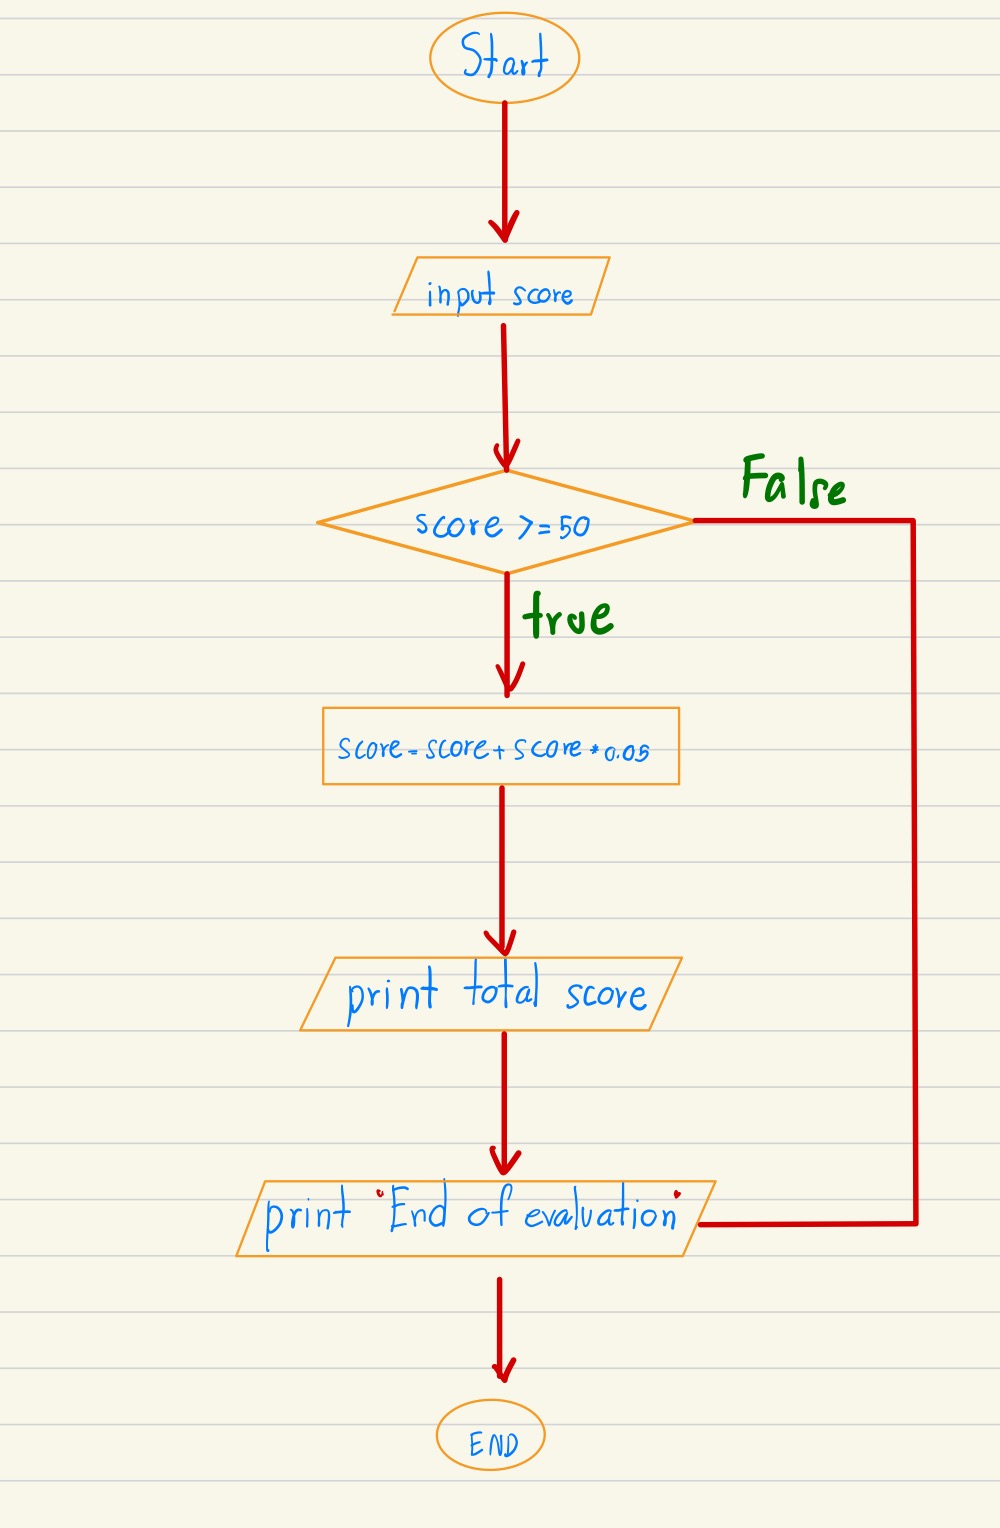 Start
input score
score >= 50
False
true
score = score + score * 0.05
print total score
print "End of evaluation"
END